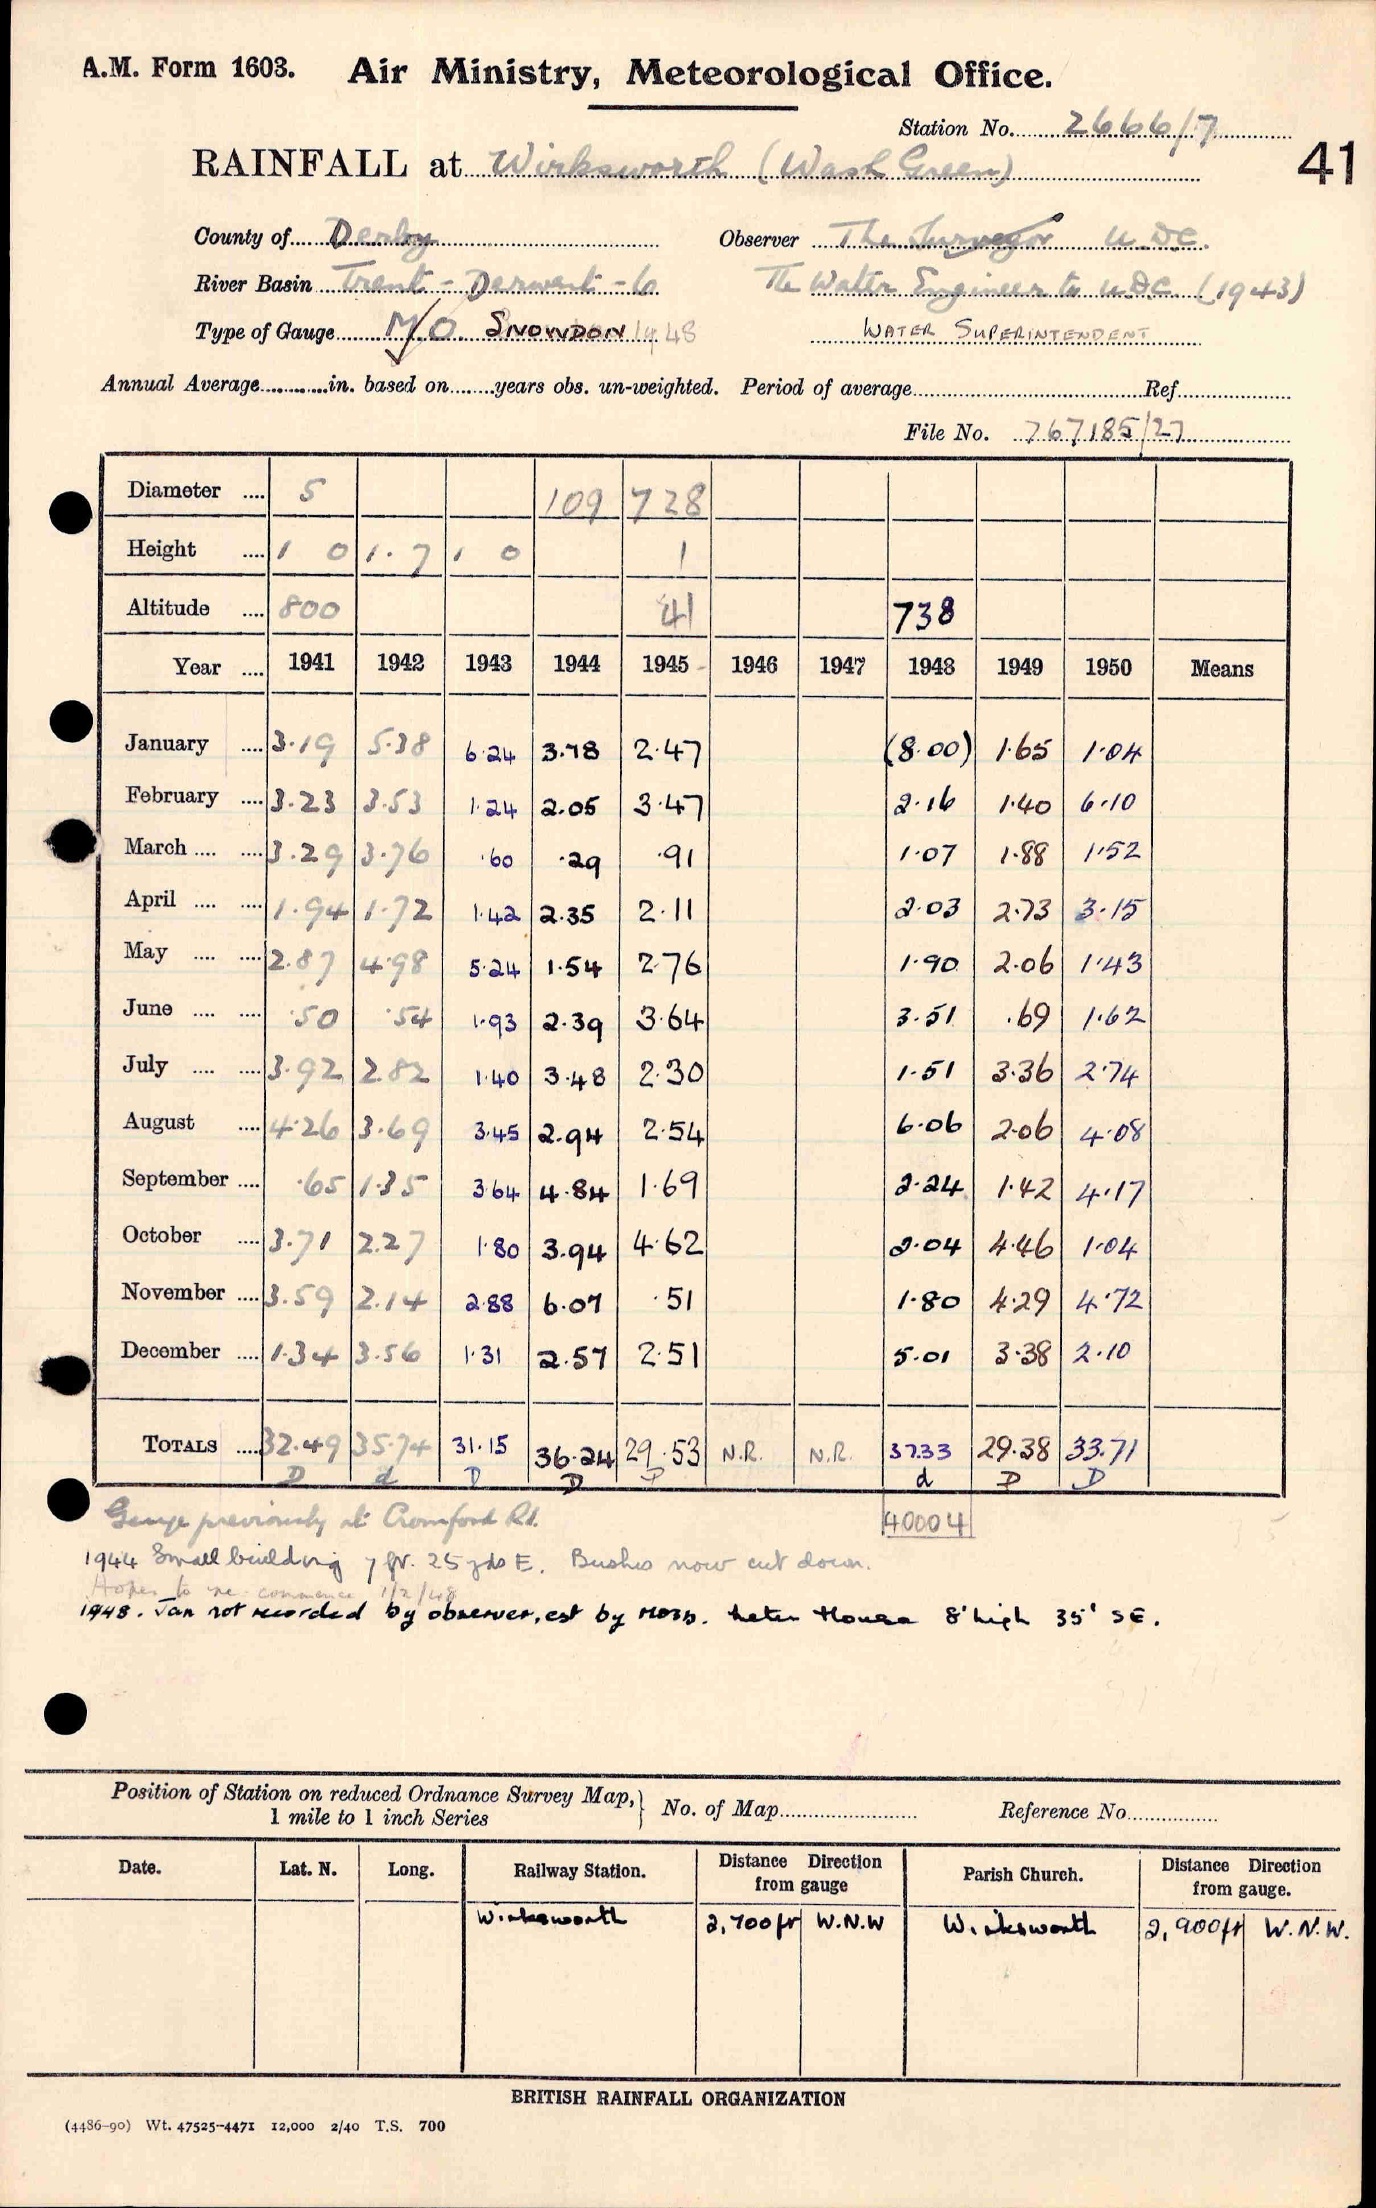 A.M. Form 1603. Air Ministry, Meteorological Office.
Station No. 2666/7
RAINFALL at Wirksworth (Wash Green)
41
County of Derby Observer The Surveyor U.D.C.
River Basin Trent - Derwent - 6 The Water Engineer to U.D.C. (1943)
Type of Gauge M.O. SNOWDON 1948 WATER SUPERINTENDENT
Annual Average in. based on years obs. un-weighted. Period of average Ref
File No. 767185/27
Diameter .... 5 109 728
Height .... 1 0 1.7 1 0 1
Altitude .... 800 41 738
Year .... 1941 1942 1943 1944 1945 1946 1947 1948 1949 1950 Means
January .... 3.19 5.38 6.24 3.78 2.47 (8.00) 1.65 1.04
February .... 3.23 3.53 1.24 2.05 3.47 2.16 1.40 6.10
March .... .... 3.29 3.76 .60 .29 .91 1.07 1.88 1.52
April .... .... 1.94 1.72 1.42 2.35 2.11 2.03 2.73 3.15
May .... .... 2.87 4.98 5.24 1.54 2.76 1.90 2.06 1.43
June .... .... .50 .54 1.93 2.39 3.64 3.51 .69 1.62
July .... .... 3.92 2.82 1.40 3.48 2.30 1.51 3.36 2.74
August .... 4.26 3.69 3.45 2.94 2.54 6.06 2.06 4.08
September .... .65 1.35 3.64 4.84 1.69 2.24 1.42 4.17
October .... 3.71 2.27 1.80 3.94 4.62 2.04 4.46 1.04
November .... 3.59 2.14 2.88 6.07 .51 1.80 4.29 4.72
December .... 1.34 3.56 1.31 2.57 2.51 5.01 3.38 2.10
TOTALS .... 32.49 35.74 31.15 36.24 29.53 N.R. N.R. 37.33 29.38 33.71
D d D D D d D D
Gauge previously at Cromford Rd. 40004
1944 Small building 7 ft. 25 yds E. Bushes now cut down.
Hopes to re-commence 1/2/48
1948. Jan not recorded by observer, est by House 8' high 35' SE.
Position of Station on reduced Ordnance Survey Map,
1 mile to 1 inch Series } No. of Map Reference No.
Date. Lat. N. Long. Railway Station. Distance Direction from gauge Parish Church. Distance Direction from gauge.
Wirksworth 2,700ft W.N.W Wirksworth 2,900ft W.N.W.
BRITISH RAINFALL ORGANIZATION
(4486-90) Wt. 47525-4471 12,000 2/40 T.S. 700